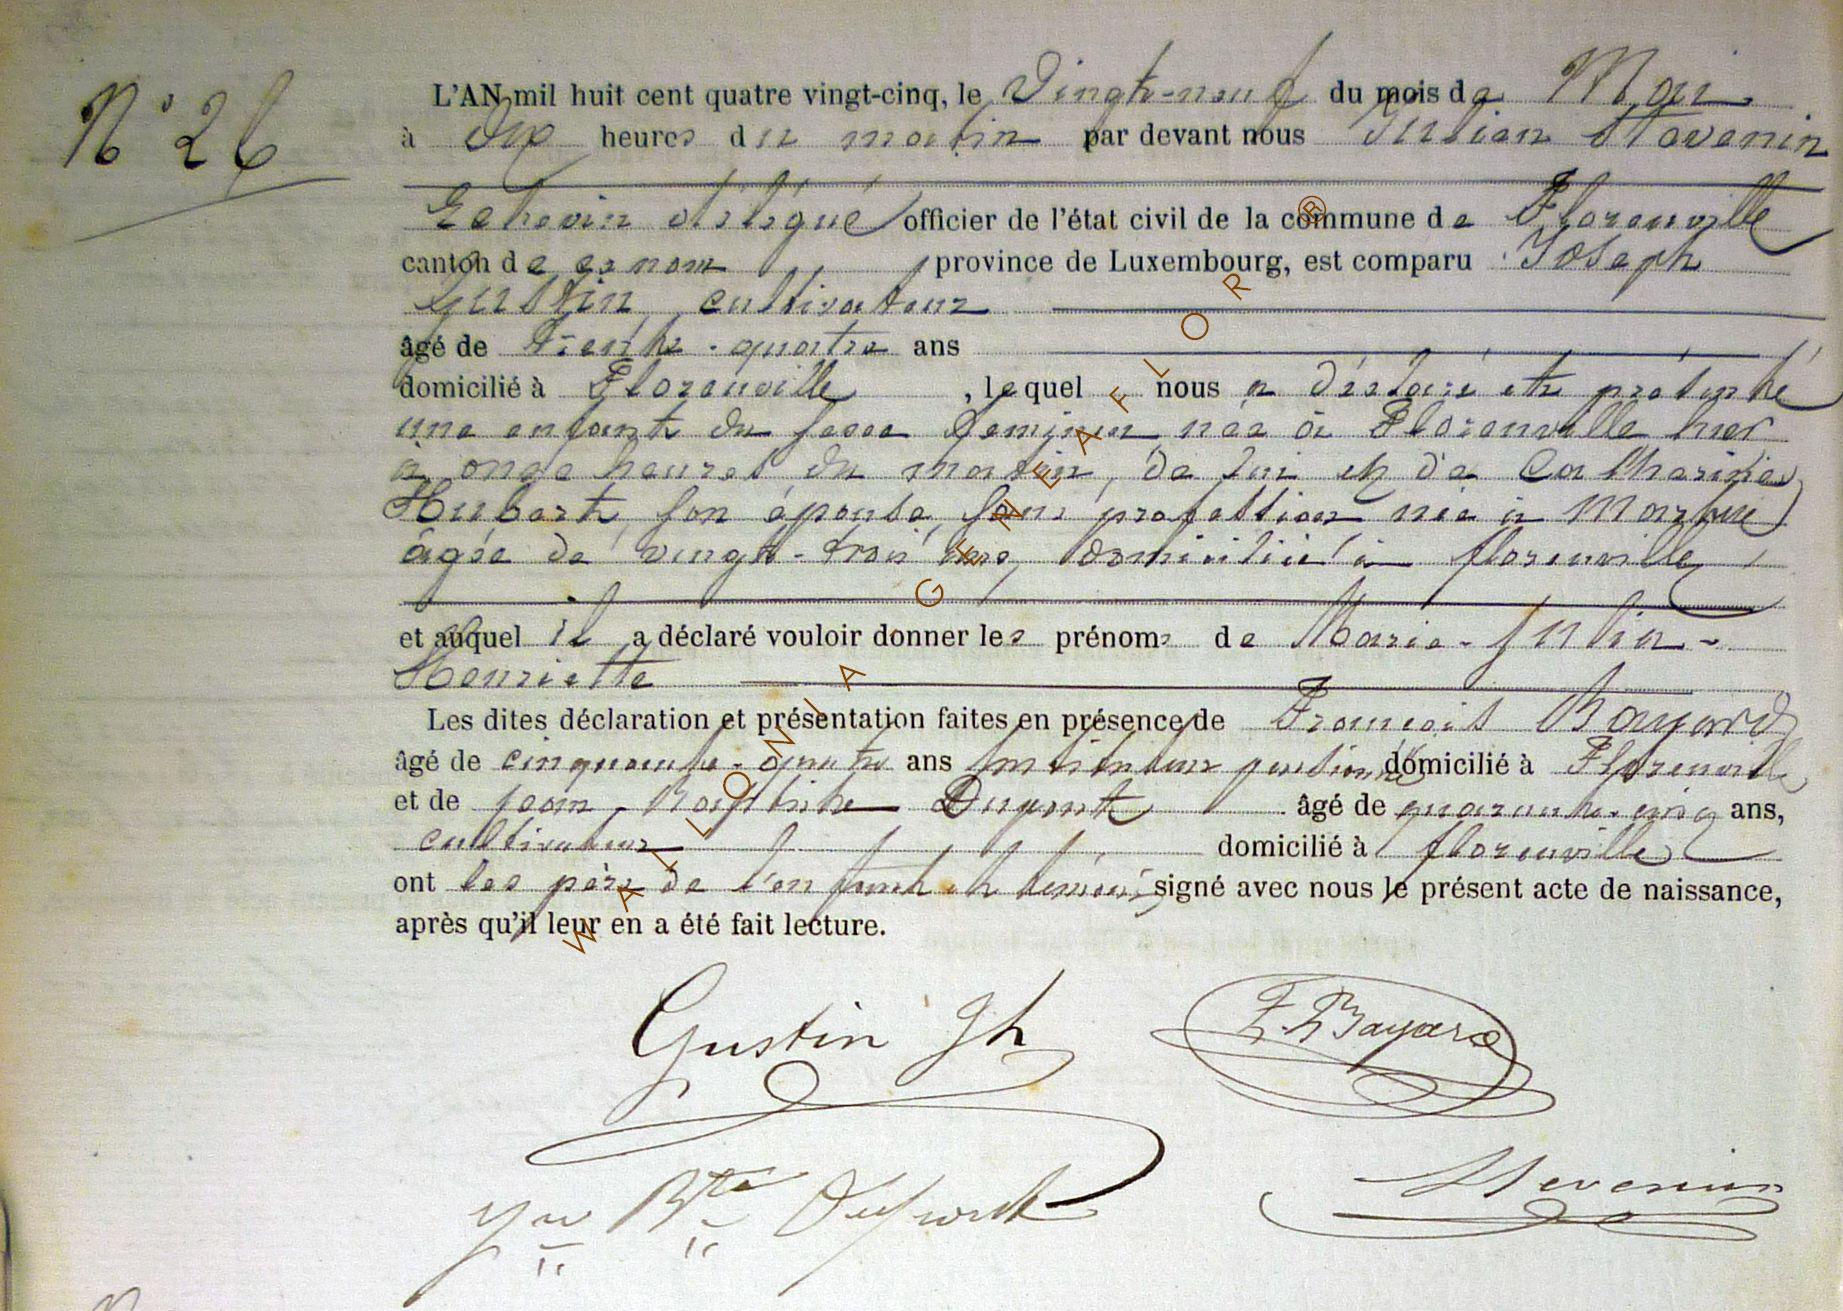 N° 26
L'AN mil huit cent quatre vingt-cinq, le Vingt-neuf du mois de Mai
à dix heures du matin par devant nous Julien Stevenin
Echevin délégué officier de l'état civil de la commune de Florenville
canton de ce nom province de Luxembourg, est comparu Joseph
Gustin, cultivateur
âgé de Trente-quatre ans
domicilié à Florenville, lequel nous a déclaré et présenté
une enfant du sexe féminin née à Florenville hier
à onze heures du matin, de lui et de Catherine
Hubert, son épouse, sans profession née à
âgée de vingt-trois ans, domiciliée à florenville
et auquel il a déclaré vouloir donner les prénoms de Marie-Julia-
Henriette
Les dites déclaration et présentation faites en présence de François Bayard
âgé de cinquante-quatre ans instituteur pensionné domicilié à Florenville
et de Jean-Baptiste Dupont âgé de quarante-cinq ans,
cultivateur domicilié à florenville
ont les père de l'enfant et témoins signé avec nous le présent acte de naissance,
après qu'il leur en a été fait lecture.
Gustin Jh F. Bayard
Jn Bte Stevenin
WALLONIA GENEAFLOR ®